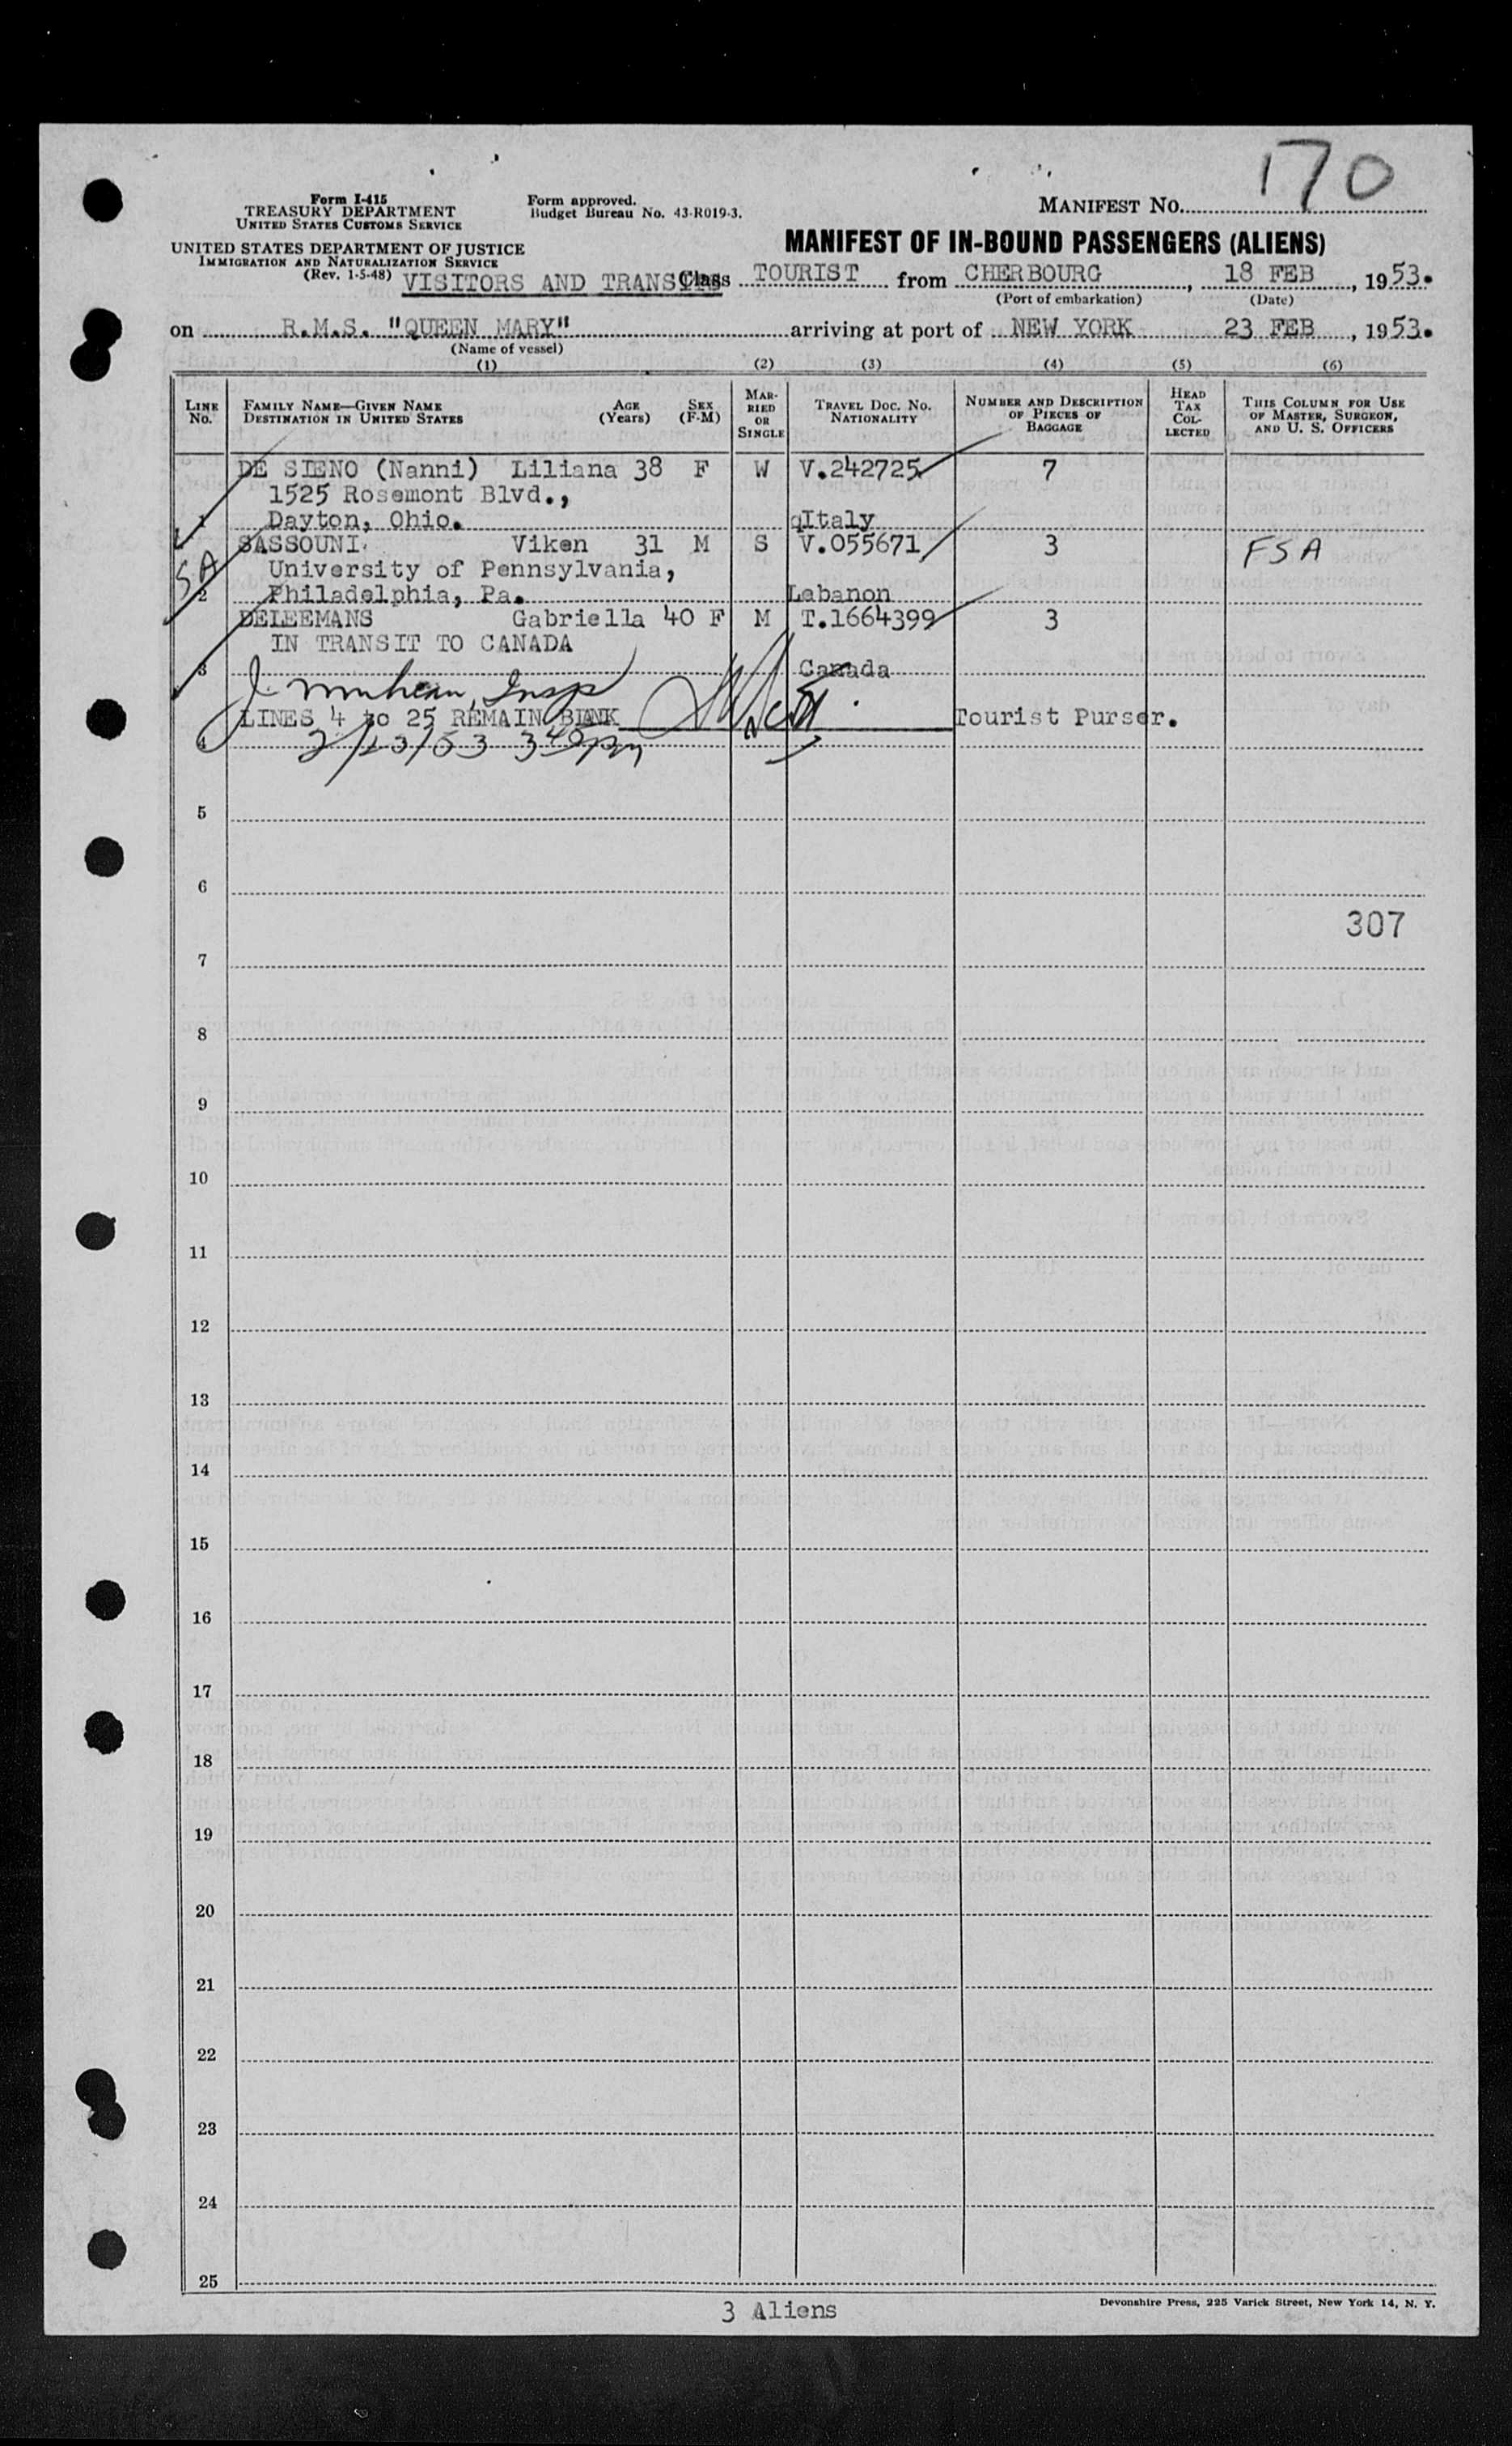 170
Form I-415
TREASURY DEPARTMENT
UNITED STATES CUSTOMS SERVICE
Form approved.
Budget Bureau No. 43-R019-3.
MANIFEST NO.
UNITED STATES DEPARTMENT OF JUSTICE
IMMIGRATION AND NATURALIZATION SERVICE
(Rev. 1-5-48)
MANIFEST OF IN-BOUND PASSENGERS (ALIENS)
VISITORS AND TRANSITS Class TOURIST from CHERBOURG, 18 FEB, 1953.
(Port of embarkation) (Date)
on R.M.S. "QUEEN MARY" arriving at port of NEW YORK 23 FEB, 1953.
(Name of vessel)
(1) (2) (3) (4) (5) (6)
LINE NO.
FAMILY NAME—GIVEN NAME
DESTINATION IN UNITED STATES
AGE (Years)
SEX (F-M)
MARRIED OR SINGLE
TRAVEL DOC. NO.
NATIONALITY
NUMBER AND DESCRIPTION OF PIECES OF BAGGAGE
HEAD TAX COLLECTED
THIS COLUMN FOR USE OF MASTER, SURGEON, AND U. S. OFFICERS
DE SIENO (Nanni) Liliana 38 F W V.242725 7
1525 Rosemont Blvd.,
1 Dayton, Ohio. qItaly
SASSOUNI Viken 31 M S V.055671 3 FSA
SA University of Pennsylvania,
2 Philadelphia, Pa. Lebanon
DELEEMANS Gabriella 40 F M T.1664399 3
IN TRANSIT TO CANADA
3 Canada
Insp
LINES 4 to 25 REMAIN BLANK Tourist Purser.
4 2/23/53 3 40 pm
5
6
307
7
8
9
10
11
12
13
14
15
16
17
18
19
20
21
22
23
24
25
3 Aliens
Devonshire Press, 225 Varick Street, New York 14, N. Y.